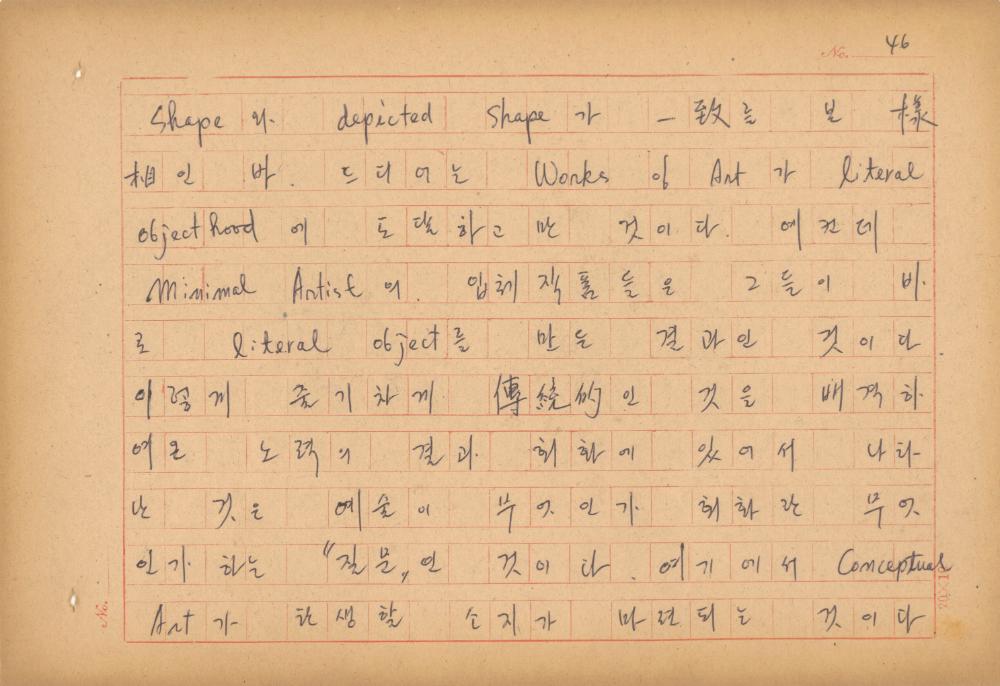 No. 46
Shape와 depicted Shape가 一致를 본 様
相인 바. 드디어는 Works of Art가 literal
objecthood에 도달하고 만 것이다. 예컨데
Minimal Artist의 입체작품들은 그들이 바
로 literal object를 만든 결과인 것이다.
이렇게 줄기차게 傳統的인 것을 배격하
여온 노력의 결과 회화에 있어서 나타
난 것은 예술이 무엇인가 회화란 무엇
인가 하는 "질문"인 것이다. 여기에서 Conceptual
Art가 탄생할 소지가 마련되는 것이다
No.